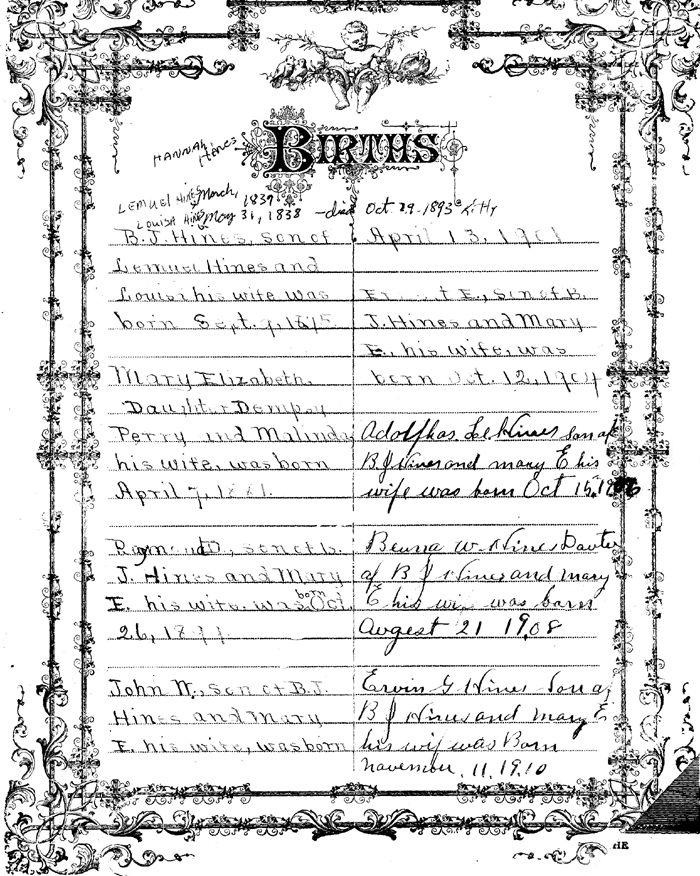 BIRTHS
HANNAH Hines
LEMUEL HINES March, 1839
LOUISA HINES May 31, 1838 - died Oct. 29. 1893
B. J. Hines, son of
Lemuel Hines and
Louisa his wife was
born Sept. 9, 1875
Mary Elizabeth
Daughter Dempsy
Perry and Malinda
his wife, was born
April 7, 1881.
Raymond D., son of B.
J. Hines and Mary
E. his wife, was born Oct.
26, 1899.
John W., son of B. J.
Hines and Mary
E. his wife, was born
April 13, 1901
Ernest E., son of B.
J. Hines and Mary
E. his wife, was
born Oct. 12, 1904
Adolfhas Hines son of
B J Hines and mary E his
wife was born Oct 15,
Beuna W. Hines Dauter
of B J Hines and mary
E his was born
Avgest 21 1908
Ervin G Hines Son of
B J Hines and mary E
his wif was Born
november. 11. 1910